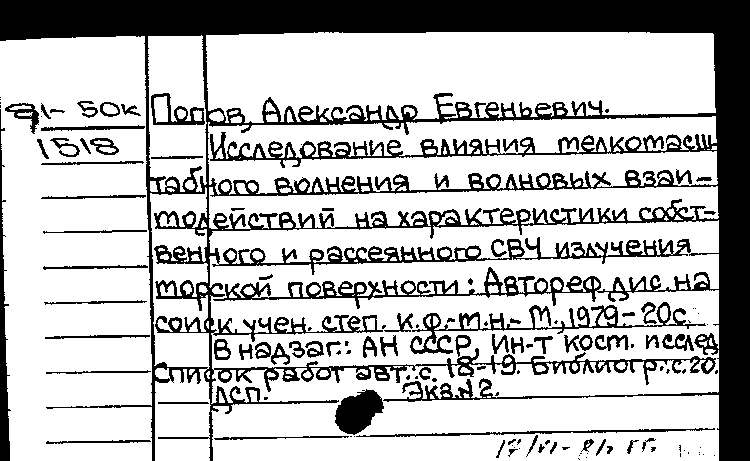 81-50к Попов, Александр Евгеньевич.
1518 Исследование влияния мелкомасш
табного волнения и волновых взаи-
модействий на характеристики собст-
венного и рассеянного СВЧ излучения
морской поверхности: Автореф. дис. на
соиск. учен. степ. к.ф.-м.н.- М., 1979-20с.
В надзаг.: АН СССР, Ин-т косм. исслед
Список работ авт.: с. 18-19. Библиогр.: с.20.
ДСП. Экз.№2.